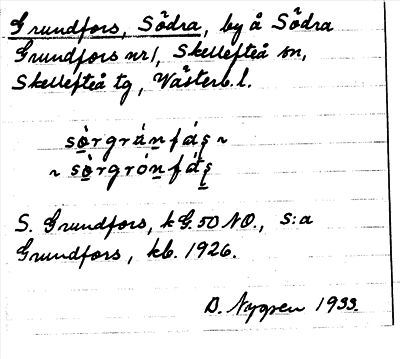 Grundfors, Södra, by å Södra
Grundfors nr 1, Skellefteå sn,
Skellefteå tg, Västerb. l.
sò̱rgrá̱nfá̱s ~
~ sò̱rgró̱nfá̱s
S. Grundfors, k G. 50 NO., s:a
Grundfors, kb. 1926.
D. 1933.